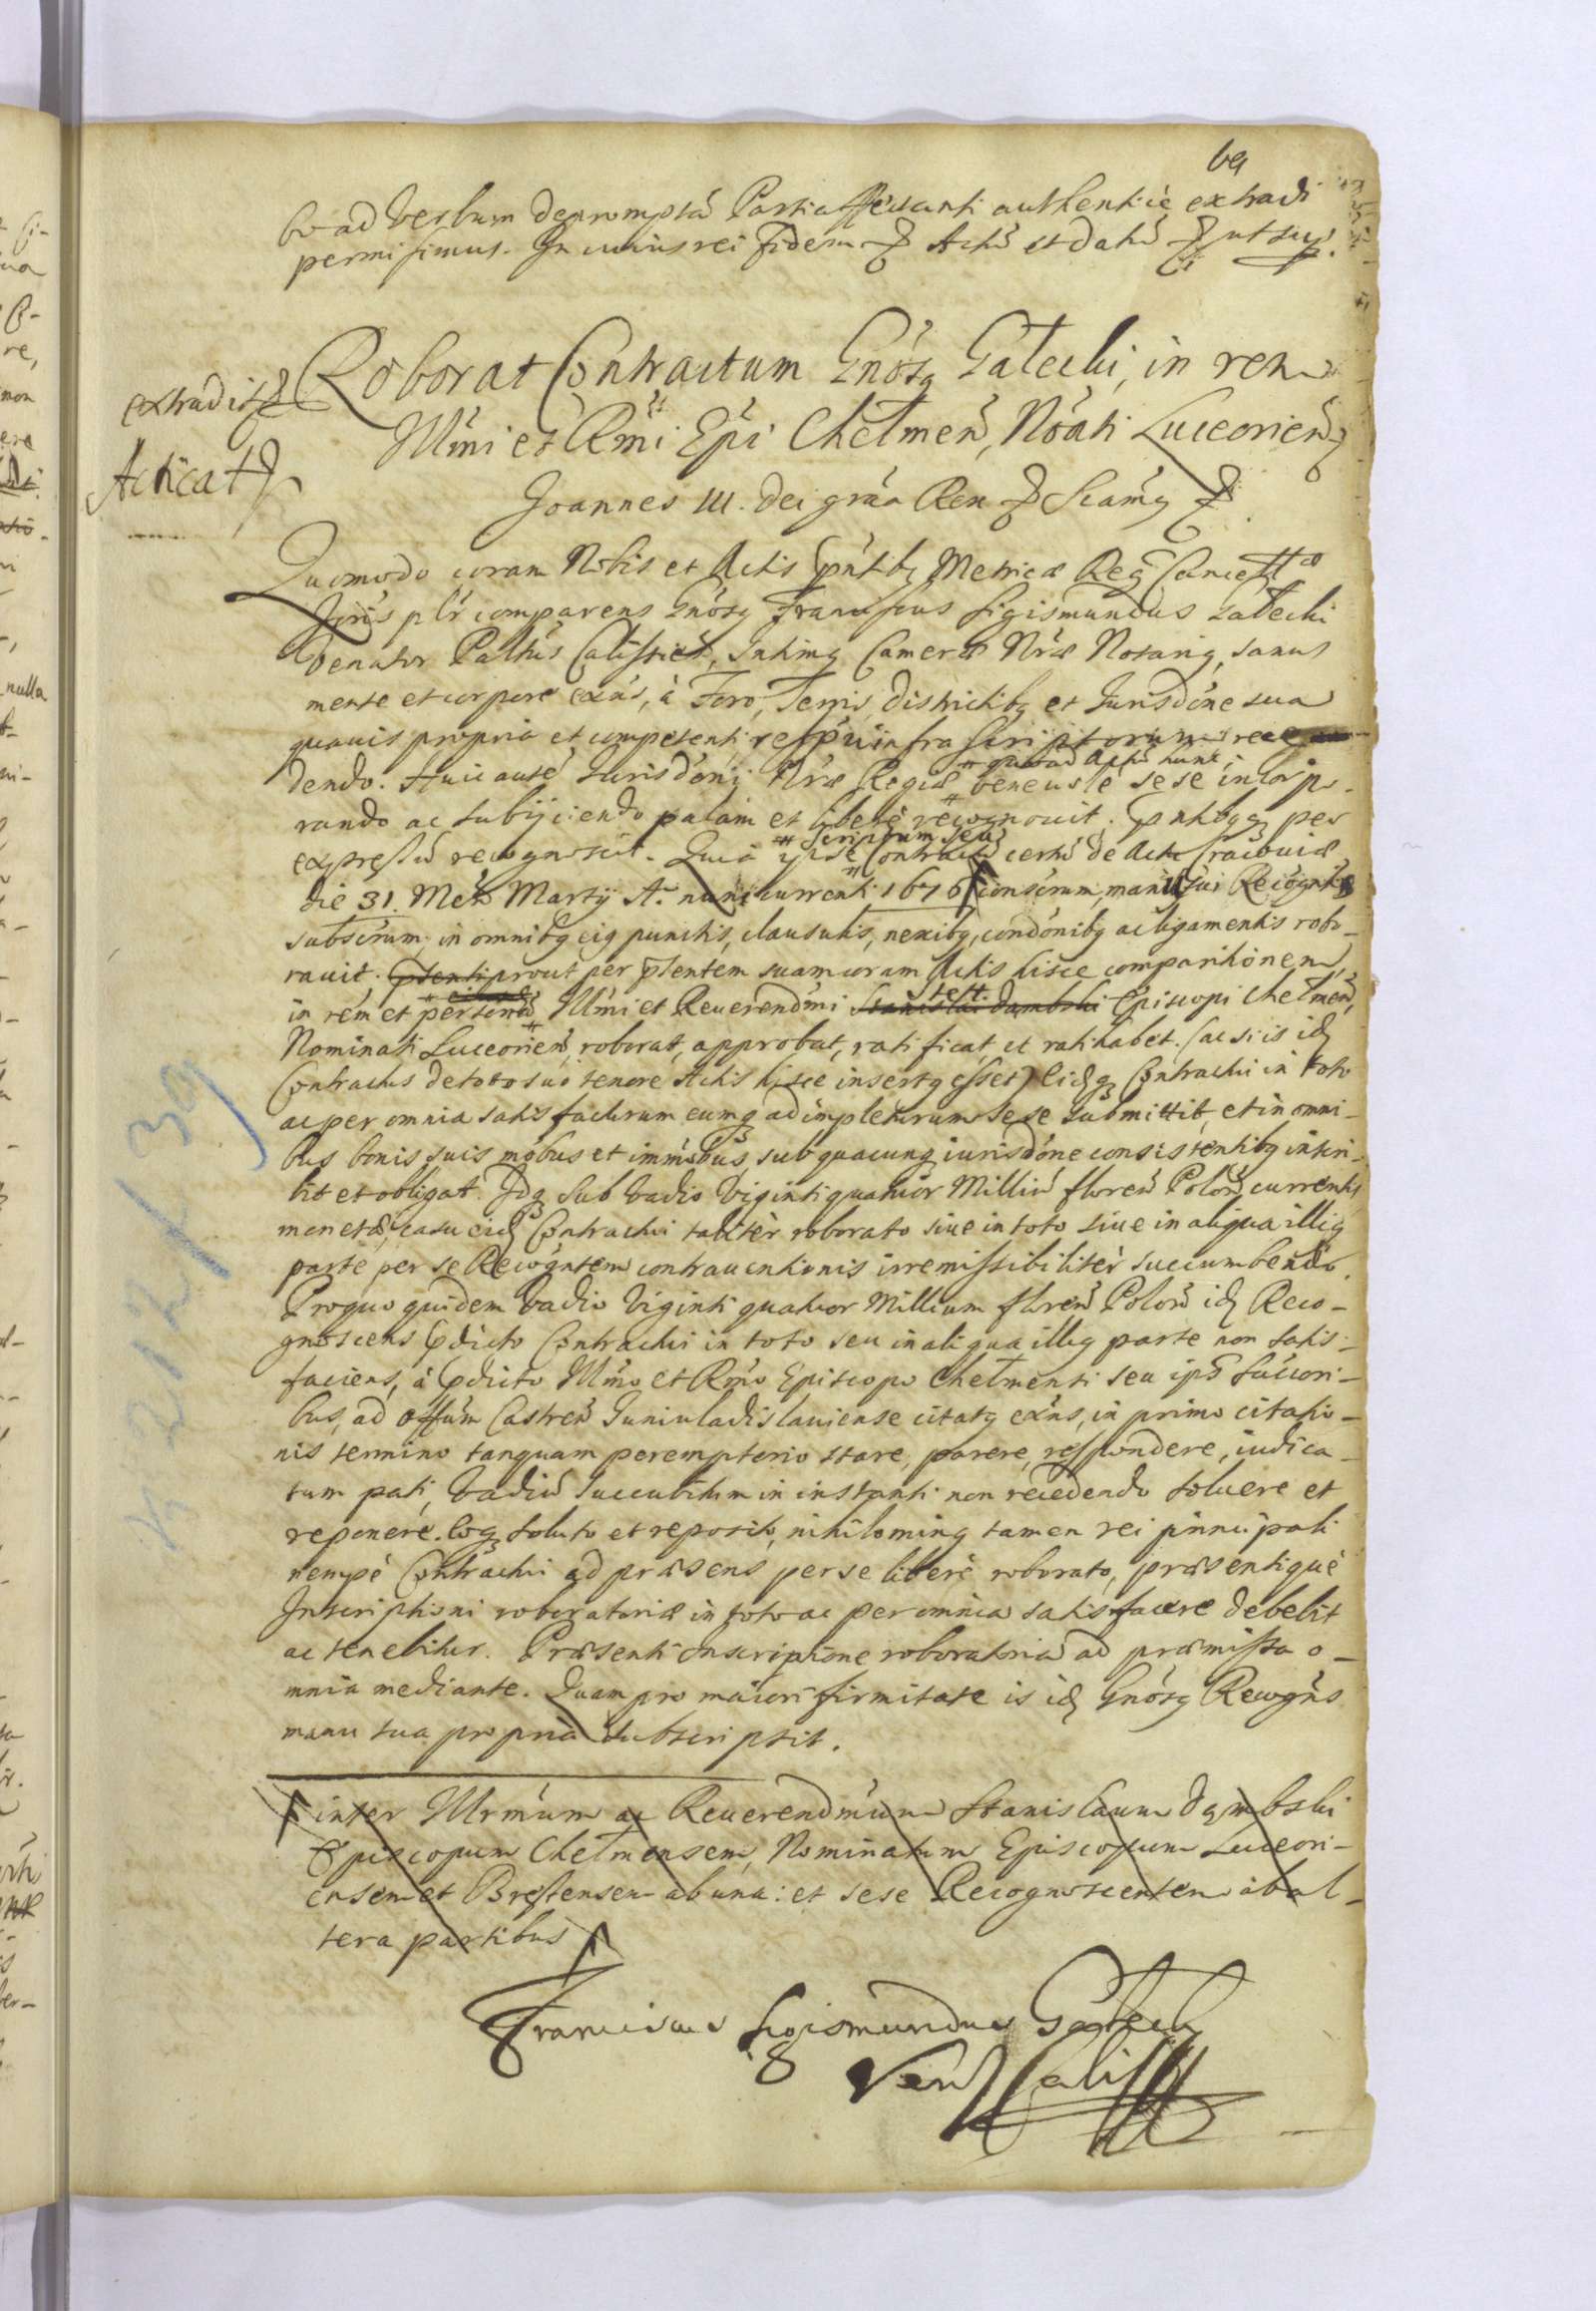 69
bo ad Verbum depromptã Parti affectanti authenticè extradi
permisimus. In cuius rei fidem Actũ et datũ ut sup.
Roborat Contractum Gnósq Gałecki, in rem
extradit
Illmi et Rmi Epi Chełmeñ, Nóati Luceorieñ
Acticat
Joannes III. Dei gráa Rex Scámq
Quomodo coram Nobis et Actis pñtibq Metricæ Reg Cancellæ
plr comparens Gnósq Franciscus Sigismundus Gałecki
Venator Palltús Calissień, Intimq Cameræ Nræ Notariq, sanus
mente et corpore exñs, à Foro, Terris, districtibq et Jurisdóne sua
quavis propria et competenti, infra Scriptorum rece
dendo. Huic auté Jurisdóni Nræ Regiæ # quoad Actũ hunc, beneuole sese incorpo-
rando ac subijciendo palàm et liberè recognouit. pñtibqq per
expressũ recognoscit. Quia ipse # Scriptum seu Contractũ certũ de Actu Cracouiæ
die 31. Mes Martij A. nunc currenti 1676 conscrum, manu sui Recógntis
subscrum, in omnibq eiq punctis, clausulis, nexibq, condónibq ac ligamentis robo-
rauit. prout per pñtentem suam coram Actis hisce comparitionem,
in rem et personã Illmi et Reuerendmi Stanislai Dambski Episcopi Chełmeñ,
Nominati Luceorieñ, roborat, approbat, ratificat, et ratihabet. (ac si is id
Contractus de toto suo tenore Actis hisce insertq esset) Eidq Contractui in toto
ac per omnia satisfacturum eumq adimpleturum sese submittit, et in omni-
bus bonis suis mobus et immóbus, sub quacunq iurisdóne consistentibq inscri-
bit et obligat. Idq sub Vadio Viginti quatuor Milliũ floreñ Poloñ currentis
monetæ, casu eid Contractui taliter roborato siue in toto siue in aliqua illiq
parte per se Recógntem contrauentionis irremissibiliter succumbendo.
Pro quo quidem Vadio Viginti quatuor Millium floreñ Poloñ id Reco-
gnoscens pdicto Contractui in toto seu in aliqua illiq parte non satis-
faciens, à pdicto Illmo et Rmo Episcopo Chełmensi seu ips Succori-
bus, ad Offum Castreñ Juniuladislauiense citatq exñs, in primo citatio-
nis termino tanquam peremptorio stare, parere, respondere, iudica-
tum pati, Vadiũ succubitum in instanti non recedendo soluere et
reponere. Eoq soluto et reposito, nihilominq tamen rei principali
nempè Contractui ad præsens per se liberè roborato, præsentiquè
Inscriptioni roboratoriæ in toto ac per omnia satisfacere debebit
ac tenebitur. Præsenti Inscriptione roboratoriâ ad præmissa o-
mnia mediante. Quam pro maiori firmitate is id Gnósq Recogñs
manu sua propriâ subscripsit.
inter Illrmum ac Reuerendmum Stanislaum Dąmbski
Episcopum Chełmensem, Nominatum Episcopum Luceori-
ensem et Brestensem ab una: et sese Recognoscentem ab al-
tera partibus
Franciscus Sigismundus Gałecki
Ven Caliss